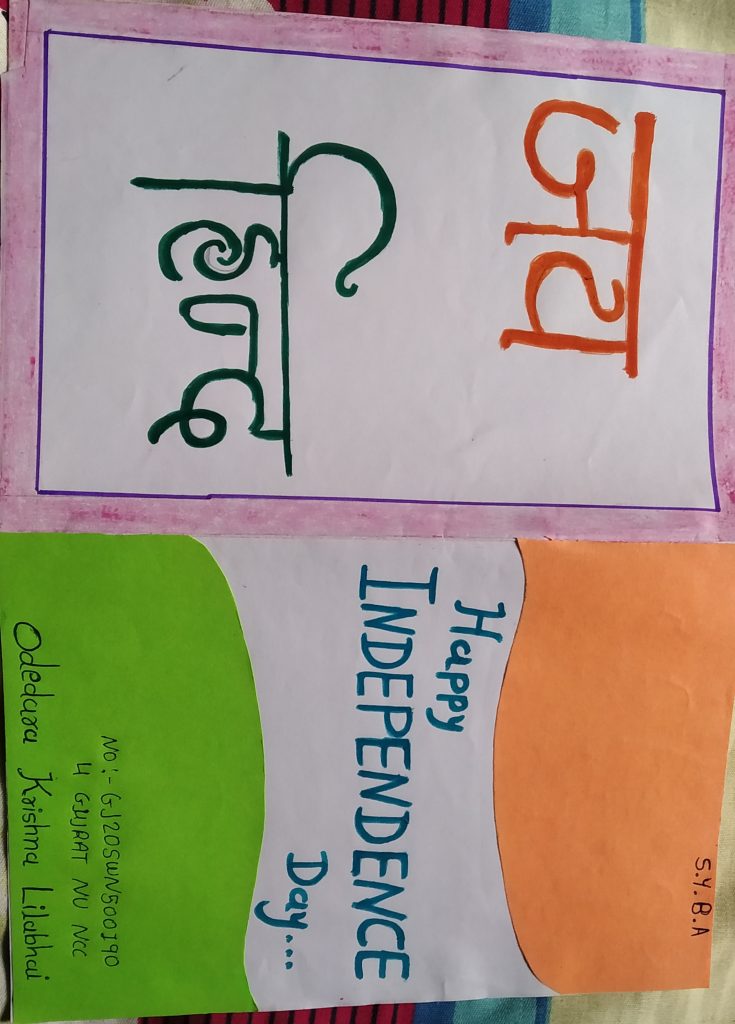 जय
हिन्द
S.Y.B.A
Happy
INDEPENDENCE
Day...
NO:- GJ20SWN500190
4 GUJRAT NU NCC
Odedara Krishna Lilabhai